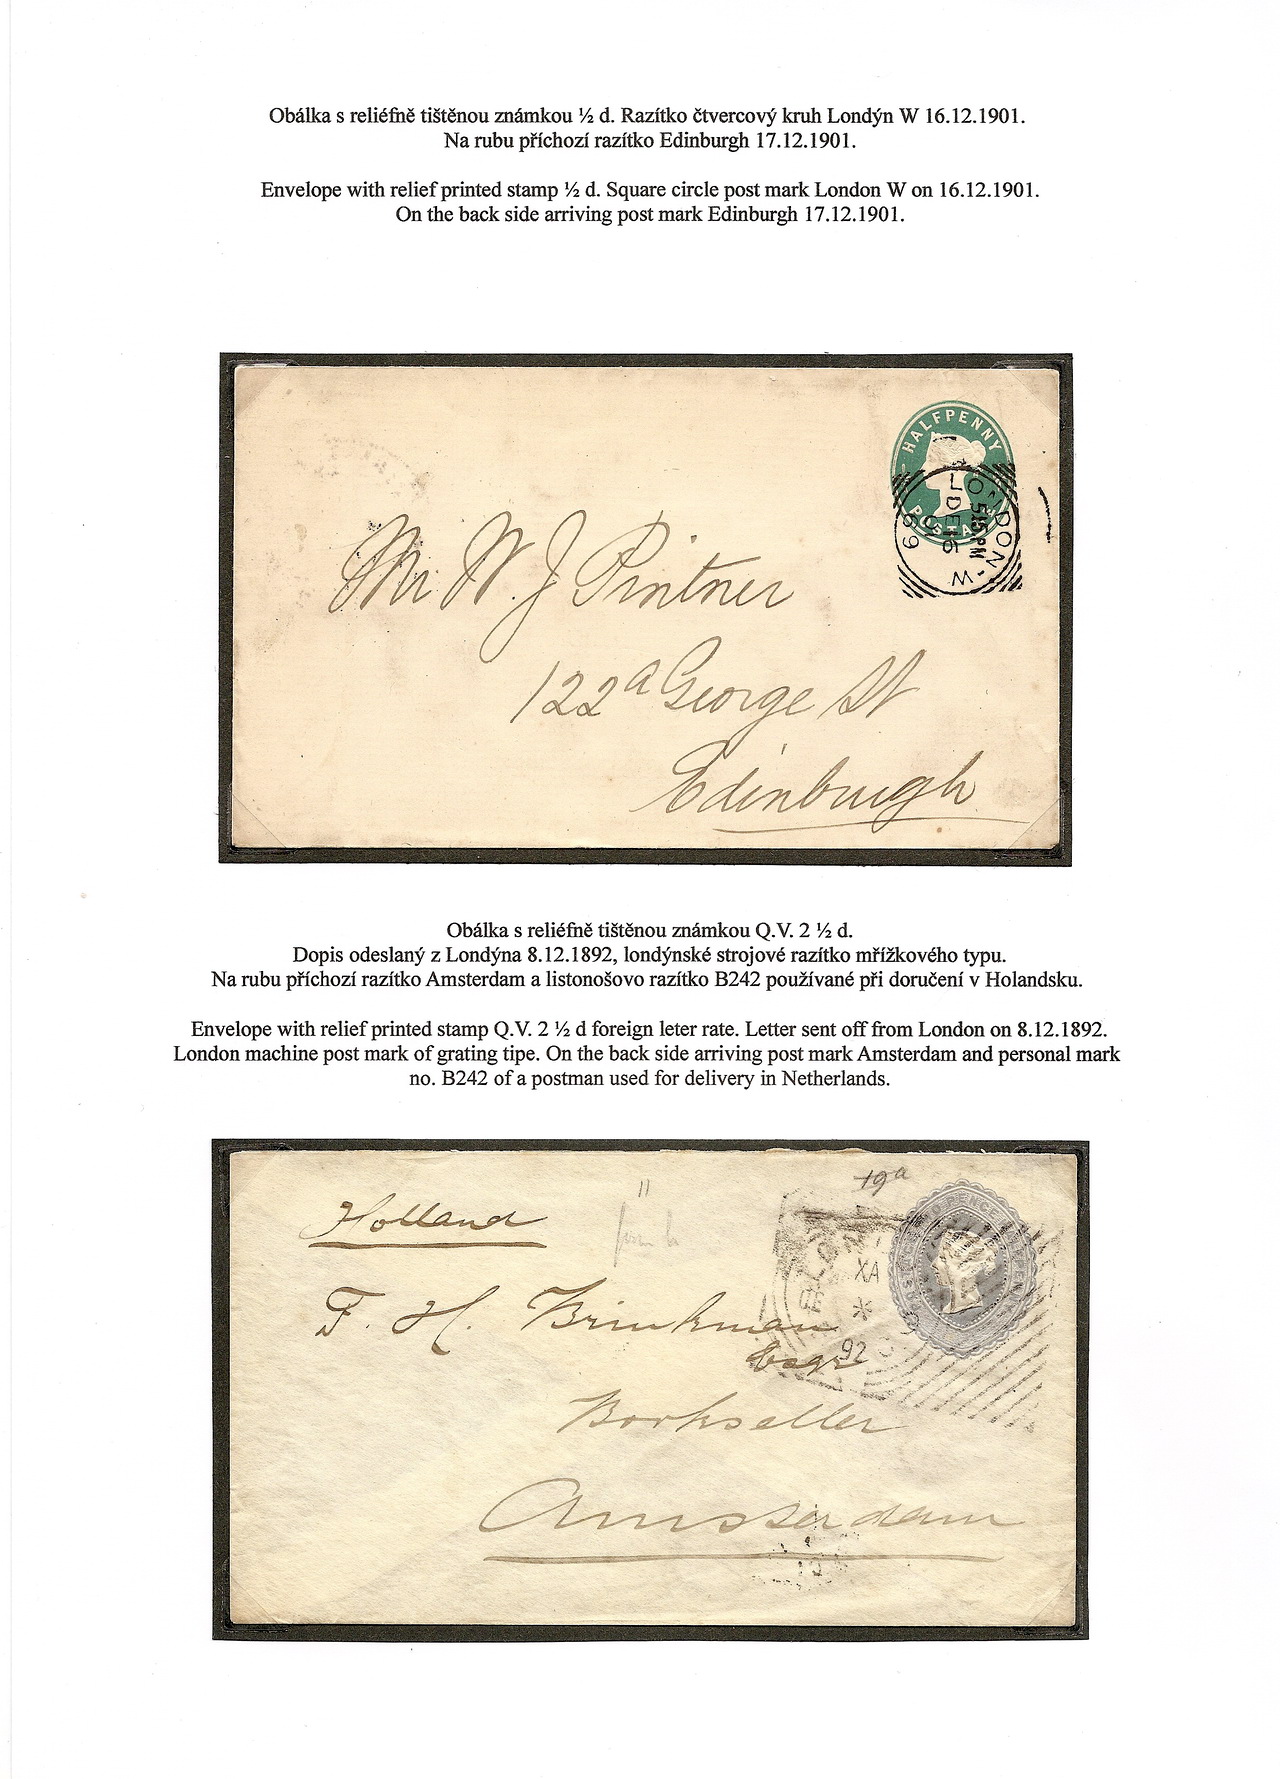 Obálka s reliéfně tištěnou známkou ½ d. Razítko čtvercový kruh Londýn W 16.12.1901.
Na rubu příchozí razítko Edinburgh 17.12.1901.
Envelope with relief printed stamp ½ d. Square circle post mark London W on 16.12.1901.
On the back side arriving post mark Edinburgh 17.12.1901.
HALFPENNY
POSTAGE
LONDON-W
5.15PM
DE 16
01
69
Mr W. J Pintner
122a George St
Edinburgh
Obálka s reliéfně tištěnou známkou Q.V. 2 ½ d.
Dopis odeslaný z Londýna 8.12.1892, londýnské strojové razítko mřížkového typu.
Na rubu příchozí razítko Amsterdam a listonošovo razítko B242 používané při doručení v Holandsku.
Envelope with relief printed stamp Q.V. 2 ½ d foreign leter rate. Letter sent off from London on 8.12.1892.
London machine post mark of grating tipe. On the back side arriving post mark Amsterdam and personal mark
no. B242 of a postman used for delivery in Netherlands.
19a
Holland
XA
92
F. H. Brinkman
Esqr
Bookseller
Amsterdam